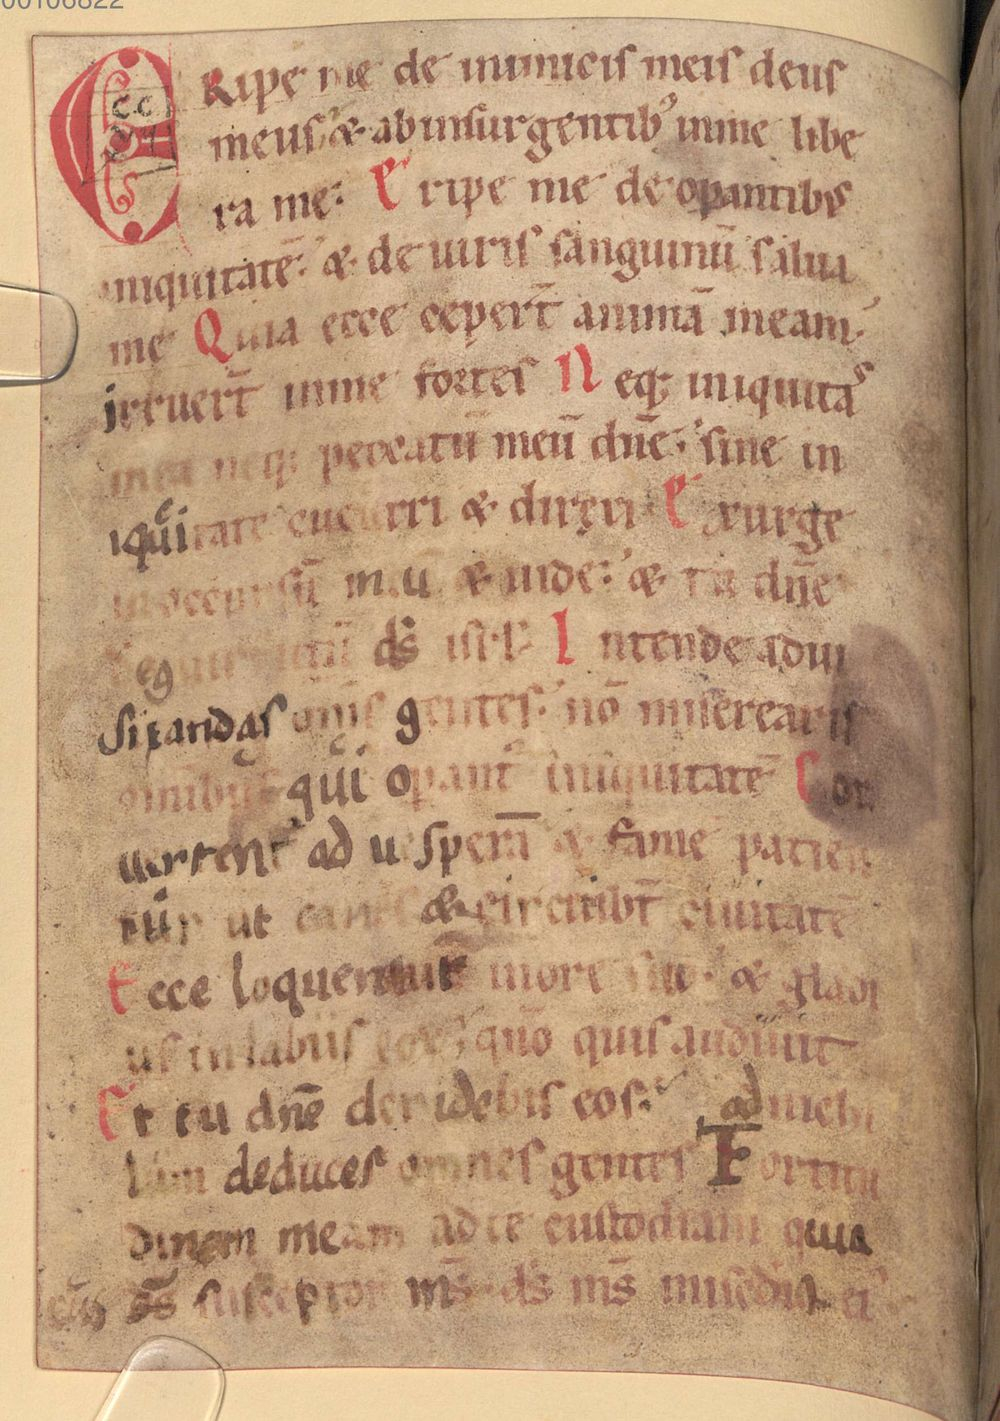 00106822
ERipe me de inimicis meis deus
meus & ab insurgentib' inme libe
ra me: Eripe me de opantibus
iniquitatē: & de uiris sanguinū salua
me Quia ecce cepert̄ animā meam
irruert̄ inme fortes Neq; iniquitas
mea neq; peccatū meū dn̄e: sine in
iquitate cucurri & direxi Exurge
in occursū meū & uide: & tu dn̄e
ds̄ isrl Intende adui
sitandas om̄s gentes: nō miserearis
om̄ibus qui opant̄ iniquitatē Con
uertent' ad uesperā & famē patien
tur ut canes & circuibt̄ ciuitatē
Ecce loquentur inore suo: & gladi
us in labiis eor: quō quis audiuit
Et tu dn̄e deridebis eos: ad nichi
lum deduces omnes gentes Fortitu
dinem meam ad te custodiam quia
ds̄ susceptor ms̄ ds̄ ms̄ mis̄edia ei'